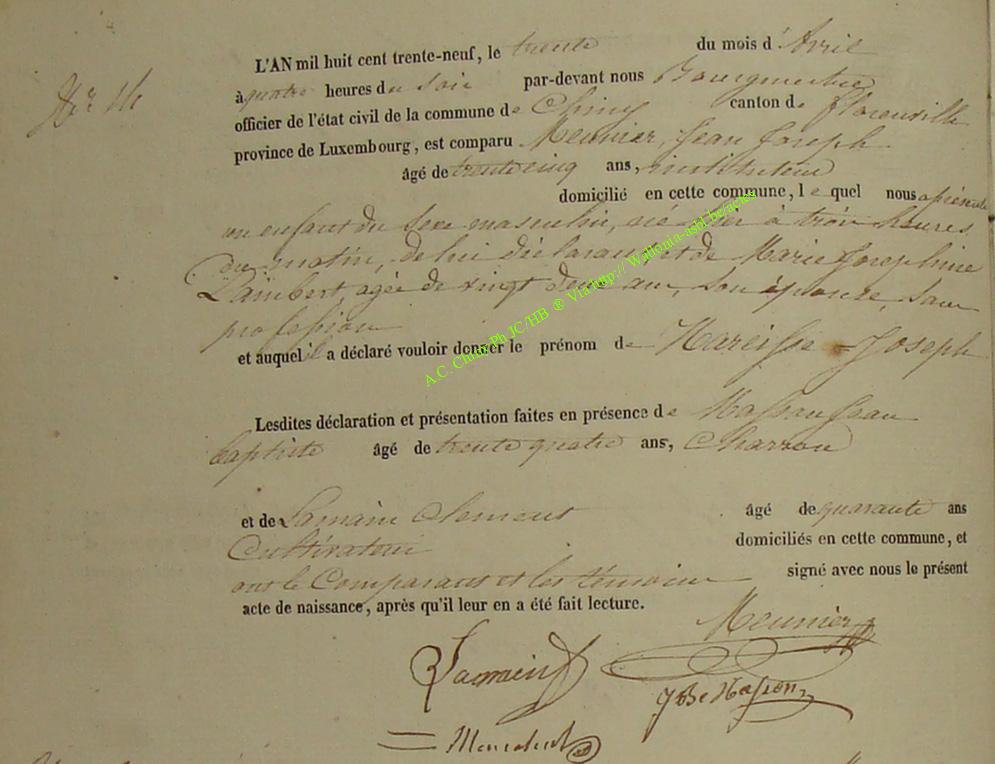 L'AN mil huit cent trente-neuf, le trente du mois d'Avril
à quatre heures du soir par-devant nous Bourgmestre
officier de l'état civil de la commune de Chiny canton de Florenville
province de Luxembourg, est comparu Meunier, Jean Joseph
âgé de trente cinq ans, instituteur
domicilié en cette commune, lequel nous a présenté
un enfant du sexe masculin, né hier à trois heures
du matin, de lui déclarant et de Marie Josephine
Lambert, agée de vingt deux ans, son épouse, sans
profession
et auquel il a déclaré vouloir donner le prénom de Narcisse Joseph
Lesdites déclaration et présentation faites en présence de Masson Jean
baptiste âgé de trente quatre ans, Charron
et de Lamain Clement âgé de quarante ans
Cultivateur domiciliés en cette commune, et
ont le Comparant et les témoins signé avec nous le présent
acte de naissance, après qu'il leur en a été fait lecture.
Meunier
Lamain
JBte Masson
A.C. Chiny Ph JC/HB ® Via http://Wallonia-asbl.be/actes